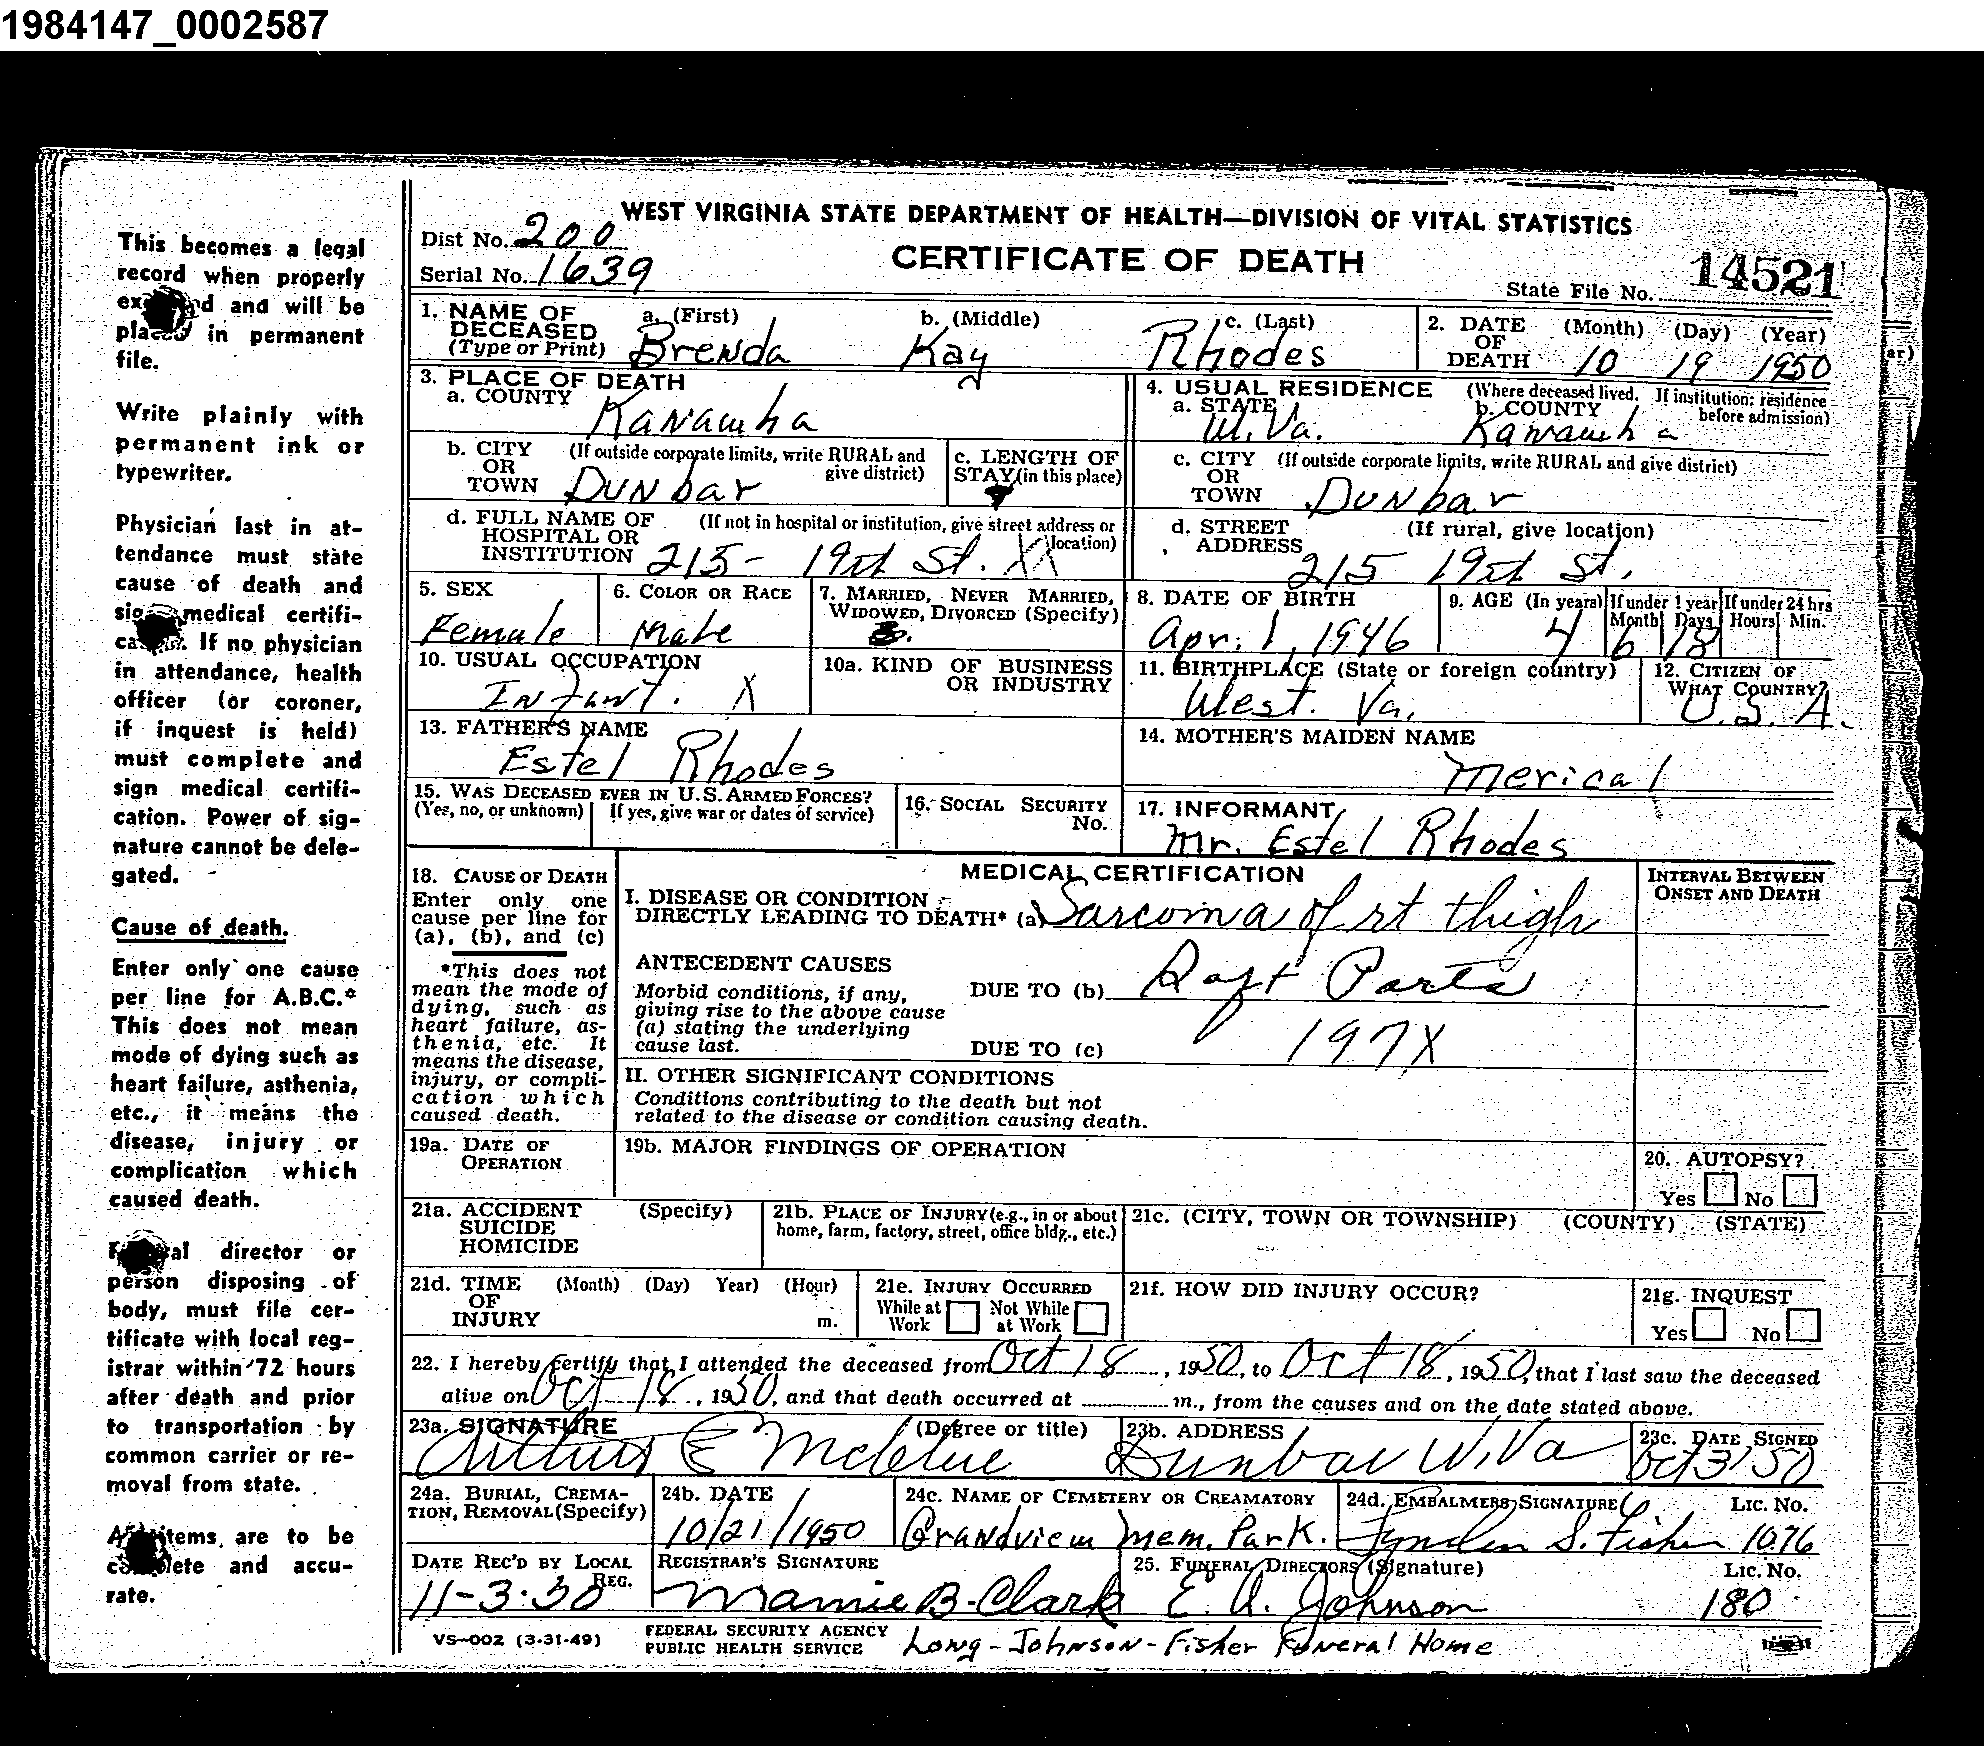 1984147_0002587
This becomes a legal
record when properly
and will be
in permanent
file.
Write plainly with
permanent ink or
typewriter.
Physician last in at-
tendance must state
cause of death and
medical certifi-
If no physician
in attendance, health
officer (or coroner,
if inquest is held)
must complete and
sign medical certifi-
cation. Power of sig-
nature cannot be dele-
gated.
Cause of death.
Enter only one cause
per line for A.B.C.*
This does not mean
mode of dying such as
heart failure, asthenia,
etc., it means the
disease, injury or
complication which
caused death.
director or
person disposing of
body, must file cer-
tificate with local reg-
istrar within 72 hours
after death and prior
to transportation by
common carrier or re-
moval from state.
items are to be
and accu-
rate.
WEST VIRGINIA STATE DEPARTMENT OF HEALTH—DIVISION OF VITAL STATISTICS
Dist No. 200
CERTIFICATE OF DEATH
Serial No. 1639
State File No. 14521
1. NAME OF DECEASED (Type or Print) a. (First) Brenda b. (Middle) Kay c. (Last) Rhodes
2. DATE OF DEATH (Month) (Day) (Year) 10 19 1950
3. PLACE OF DEATH
a. COUNTY Kanawha
4. USUAL RESIDENCE (Where deceased lived. If institution: residence before admission)
a. STATE W. Va. b. COUNTY Kanawha
b. CITY OR TOWN (If outside corporate limits, write RURAL and give district) Dunbar
c. LENGTH OF STAY (in this place)
c. CITY OR TOWN (If outside corporate limits, write RURAL and give district) Dunbar
d. FULL NAME OF HOSPITAL OR INSTITUTION (If not in hospital or institution, give street address or location) 215- 19th St. XX
d. STREET ADDRESS (If rural, give location) 215 19th St.
5. SEX Female
6. COLOR OR RACE
7. MARRIED, NEVER MARRIED, WIDOWED, DIVORCED (Specify) S.
8. DATE OF BIRTH Apr. 1, 1946
9. AGE (In years) 4 If under 1 year Month 6 Days 18 If under 24 hrs Hours Min.
10. USUAL OCCUPATION Infant. X
10a. KIND OF BUSINESS OR INDUSTRY
11. BIRTHPLACE (State or foreign country) West. Va.
12. CITIZEN OF WHAT COUNTRY? U.S.A.
13. FATHER'S NAME Estel Rhodes
14. MOTHER'S MAIDEN NAME Merical
15. WAS DECEASED EVER IN U.S. ARMED FORCES? (Yes, no, or unknown) If yes, give war or dates of service)
16. SOCIAL SECURITY No.
17. INFORMANT Mr. Estel Rhodes
18. CAUSE OF DEATH
Enter only one
cause per line for
(a), (b), and (c)
*This does not
mean the mode of
dying, such as
heart failure, as-
thenia, etc. It
means the disease,
injury, or compli-
cation which
caused death.
MEDICAL CERTIFICATION
INTERVAL BETWEEN ONSET AND DEATH
I. DISEASE OR CONDITION
DIRECTLY LEADING TO DEATH* (a) Sarcoma of rt thigh
ANTECEDENT CAUSES
Morbid conditions, if any,
giving rise to the above cause
(a) stating the underlying
cause last.
DUE TO (b) Soft Parts
DUE TO (c) 197X
II. OTHER SIGNIFICANT CONDITIONS
Conditions contributing to the death but not
related to the disease or condition causing death.
19a. DATE OF OPERATION
19b. MAJOR FINDINGS OF OPERATION
20. AUTOPSY?
Yes No
21a. ACCIDENT SUICIDE HOMICIDE (Specify)
21b. PLACE OF INJURY (e.g., in or about home, farm, factory, street, office bldg., etc.)
21c. (CITY, TOWN OR TOWNSHIP) (COUNTY) (STATE)
21d. TIME OF INJURY (Month) (Day) Year) (Hour) m.
21e. INJURY OCCURRED While at Work Not While at Work
21f. HOW DID INJURY OCCUR?
21g. INQUEST
Yes No
22. I hereby certify that I attended the deceased from Oct 18, 1950, to Oct 18, 1950, that I last saw the deceased
alive on Oct 18, 1950, and that death occurred at m., from the causes and on the date stated above.
23a. SIGNATURE (Degree or title) Arthur E McClue
23b. ADDRESS Dunbar W.Va
23c. DATE SIGNED Oct 31 '50
24a. BURIAL, CREMATION, REMOVAL (Specify)
24b. DATE 10/21/1950
24c. NAME OF CEMETERY OR CREAMATORY Grandview Mem. Park.
24d. EMBALMERS SIGNATURE Lynden S. Fisher Lic. No. 1076
DATE REC'D BY LOCAL REG. 11-3-50
REGISTRAR'S SIGNATURE Mamie B. Clark
25. FUNERAL DIRECTORS (Signature) E. A. Johnson Lic. No. 180
VS-002 (3-31-49)
FEDERAL SECURITY AGENCY
PUBLIC HEALTH SERVICE
Long-Johnson-Fisher Funeral Home